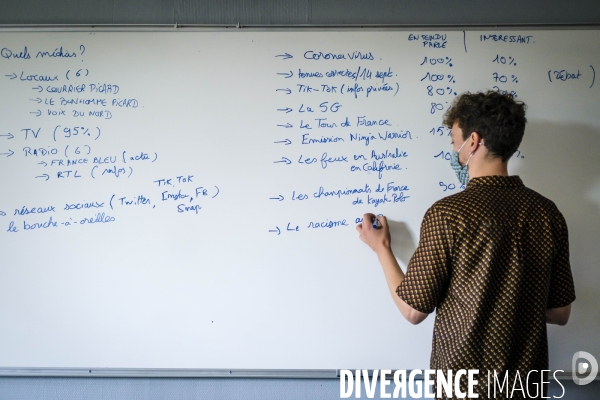 Quels médias?
→ Locaux (6)
→ COURRIER PICARD
→ LE BONHOMME PICARD.
→ VOIX DU NORD
→ TV (95%)
→ RADIO (6)
→ FRANCE BLEU (actu)
→ RTL (infos)
→ réseaux sociaux (Twitter, Tik.Tok Insta, FB) Snap
le bouche-à-oreilles
ENTENDU PARLÉ
INTÉRESSANT.
→ Coronavirus. 100% 10%
→ tenues correctes/14 sept. 100% 70% (Débat)
→ Tik-Tok (infos privées) 80%
→ La 5G
→ Le Tour de France
→ Emission Ninja Warrior.
→ Les feux en Australie
en Californie.
→ Les championnats de France
de kayak-Polo
→ Le racisme
DIVERGENCE IMAGES.COM